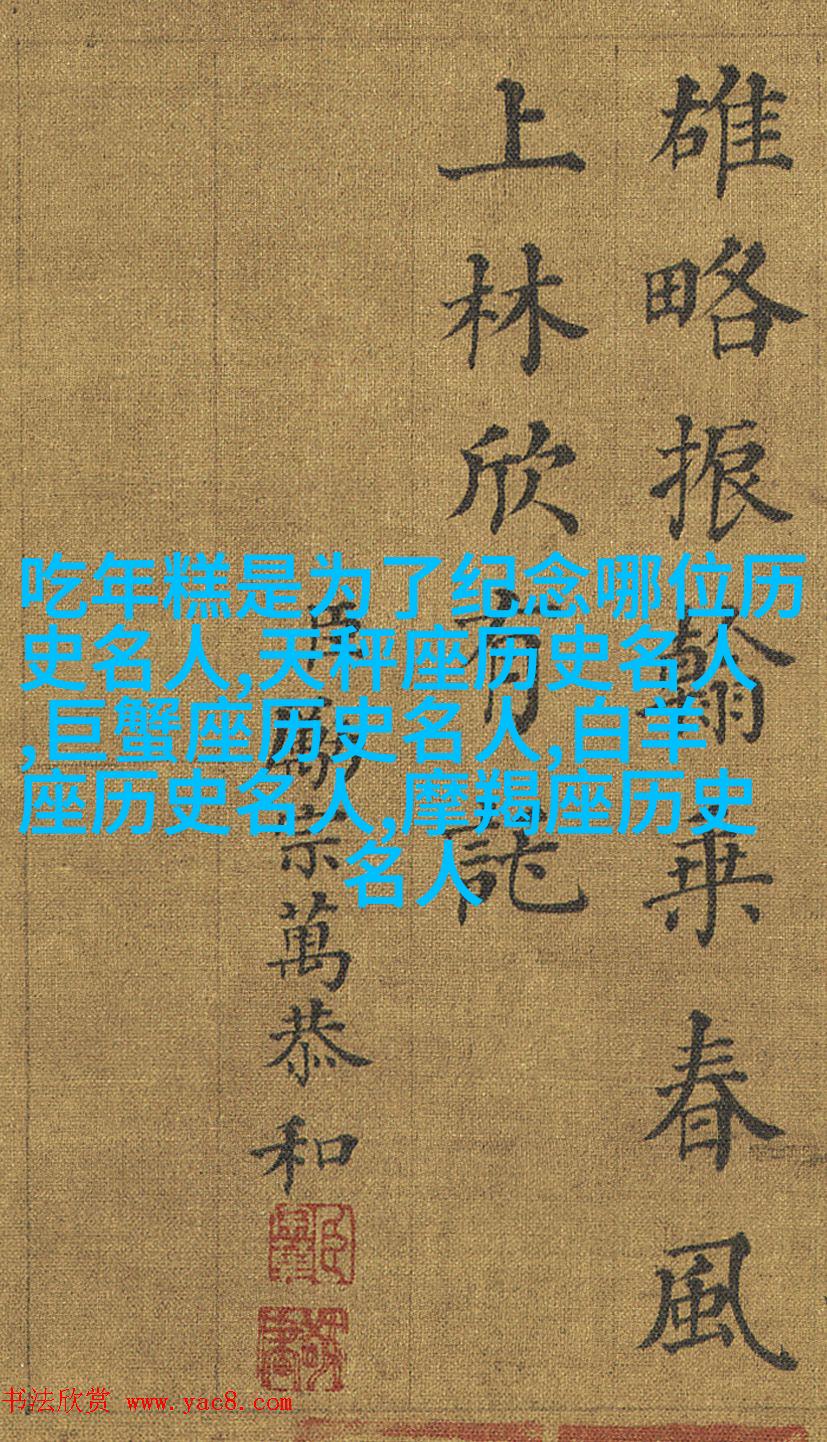 雄略振翰乘春風
上林欣有誌
臣勵宗萬恭和
吃年糕是为了纪念哪位历
史名人,天秤座历史名人
,巨蟹座历史名人,白羊
座历史名人,摩羯座历史
名人
书法欣赏 www.yac8.com